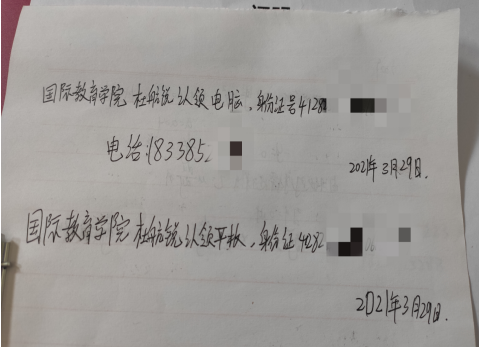 国际教育学院 杜航锐认领电脑,身份证号41280
电话:183385
2021年3月29日.
国际教育学院 杜航锐认领平板,身份证4282
2021年3月29日.